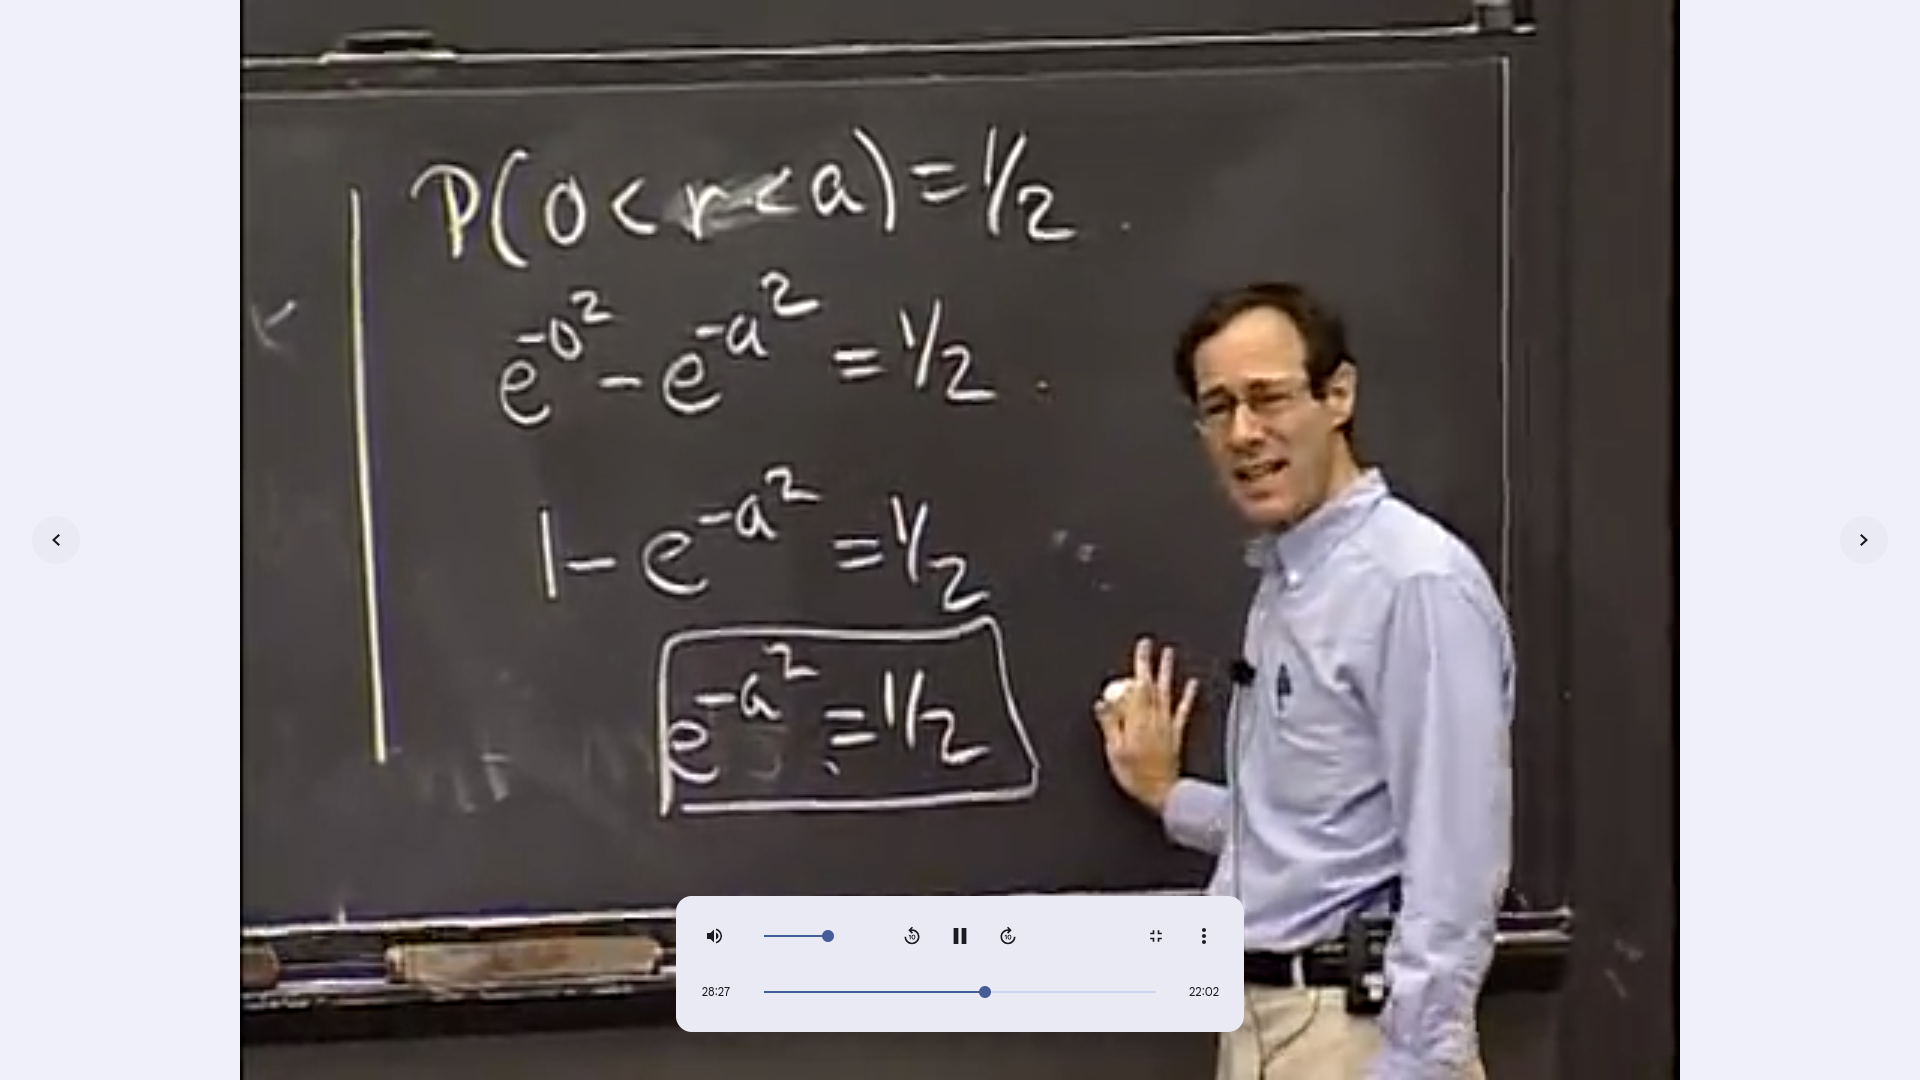 P(0<r<a)=1/2
e^{-0^2}-e^{-a^2}=1/2
1-e^{-a^2}=1/2
e^{-a^2}=1/2
28:27
22:02